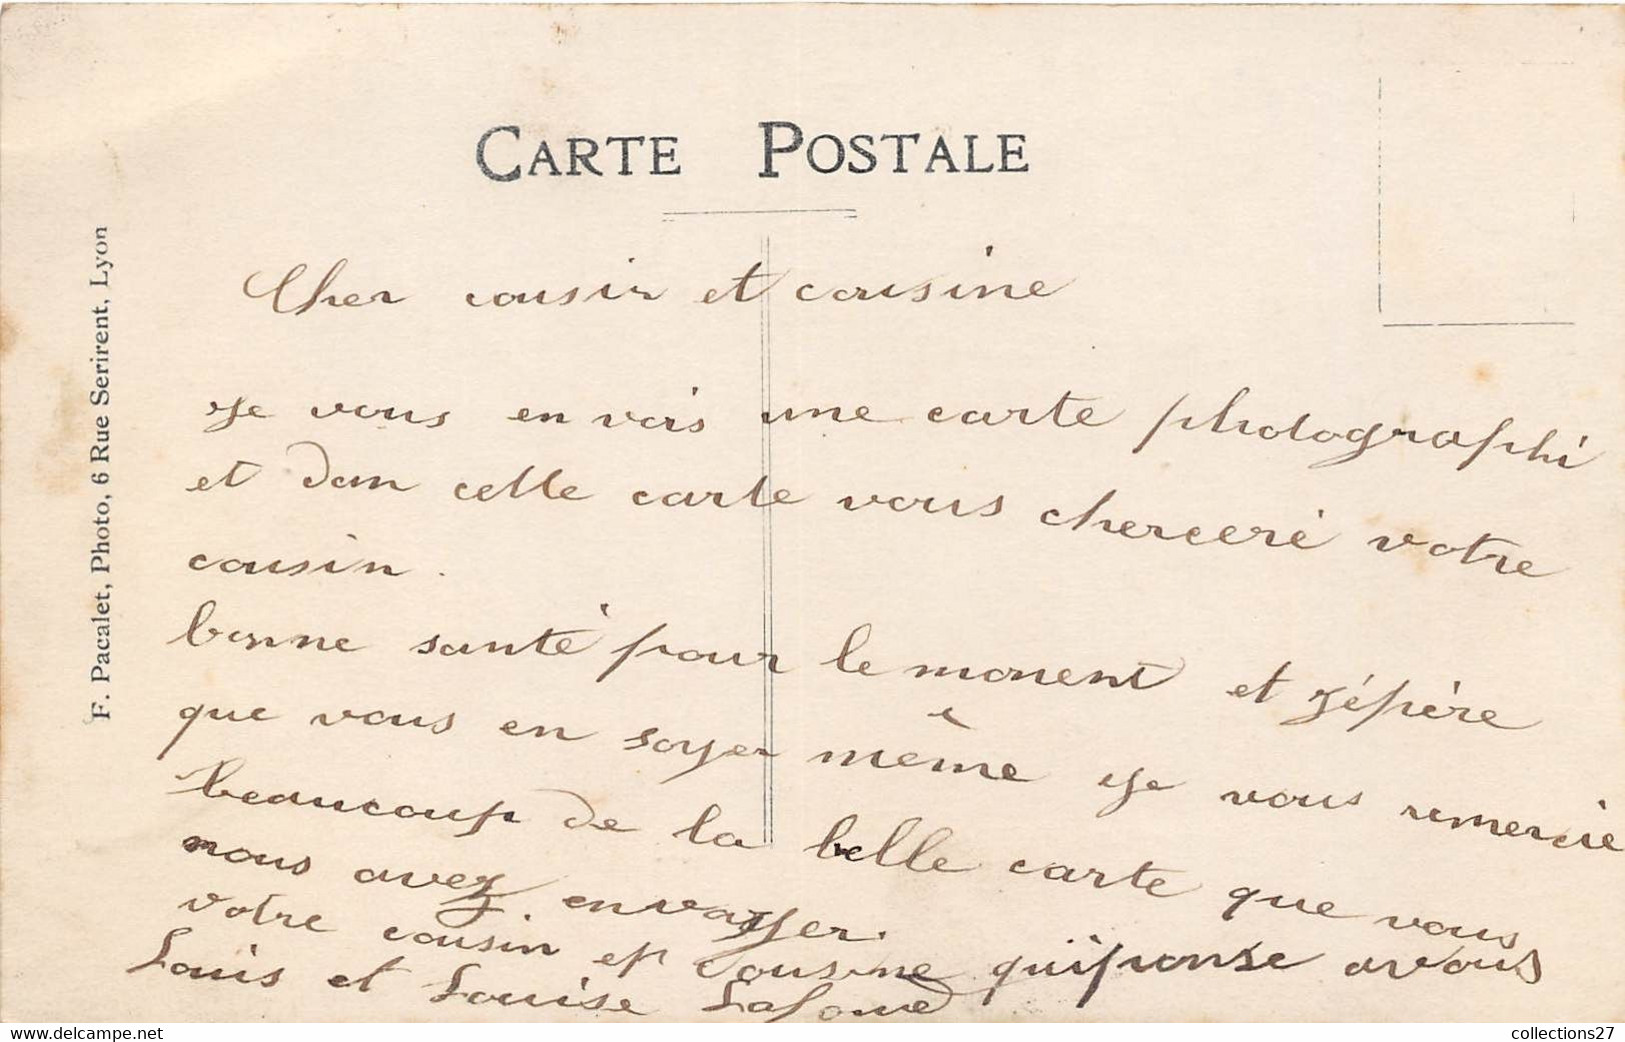 CARTE POSTALE
F. Pacalet, Photo, 6 Rue Serirent, Lyon
Cher cousin et cousine
Je vous en vois une carte photographi
et dan celle carte vous cherceré votre
cousin.
bonne santé pour le monent et jépère
que vous en soyer même Je vous remercie
beaucoup de la belle carte que vous
nous avez envoyyer.
votre cousin et cousine qui ponse avous
Louis et Louise
www.delcampe.net
collections27